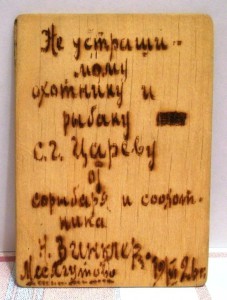 Не устраши-
мому
охотнику и
рыбаку
С.Г. Цареву
от
сорыбара и соохот-
ника
Н. Винклер
Месягутово 26г.